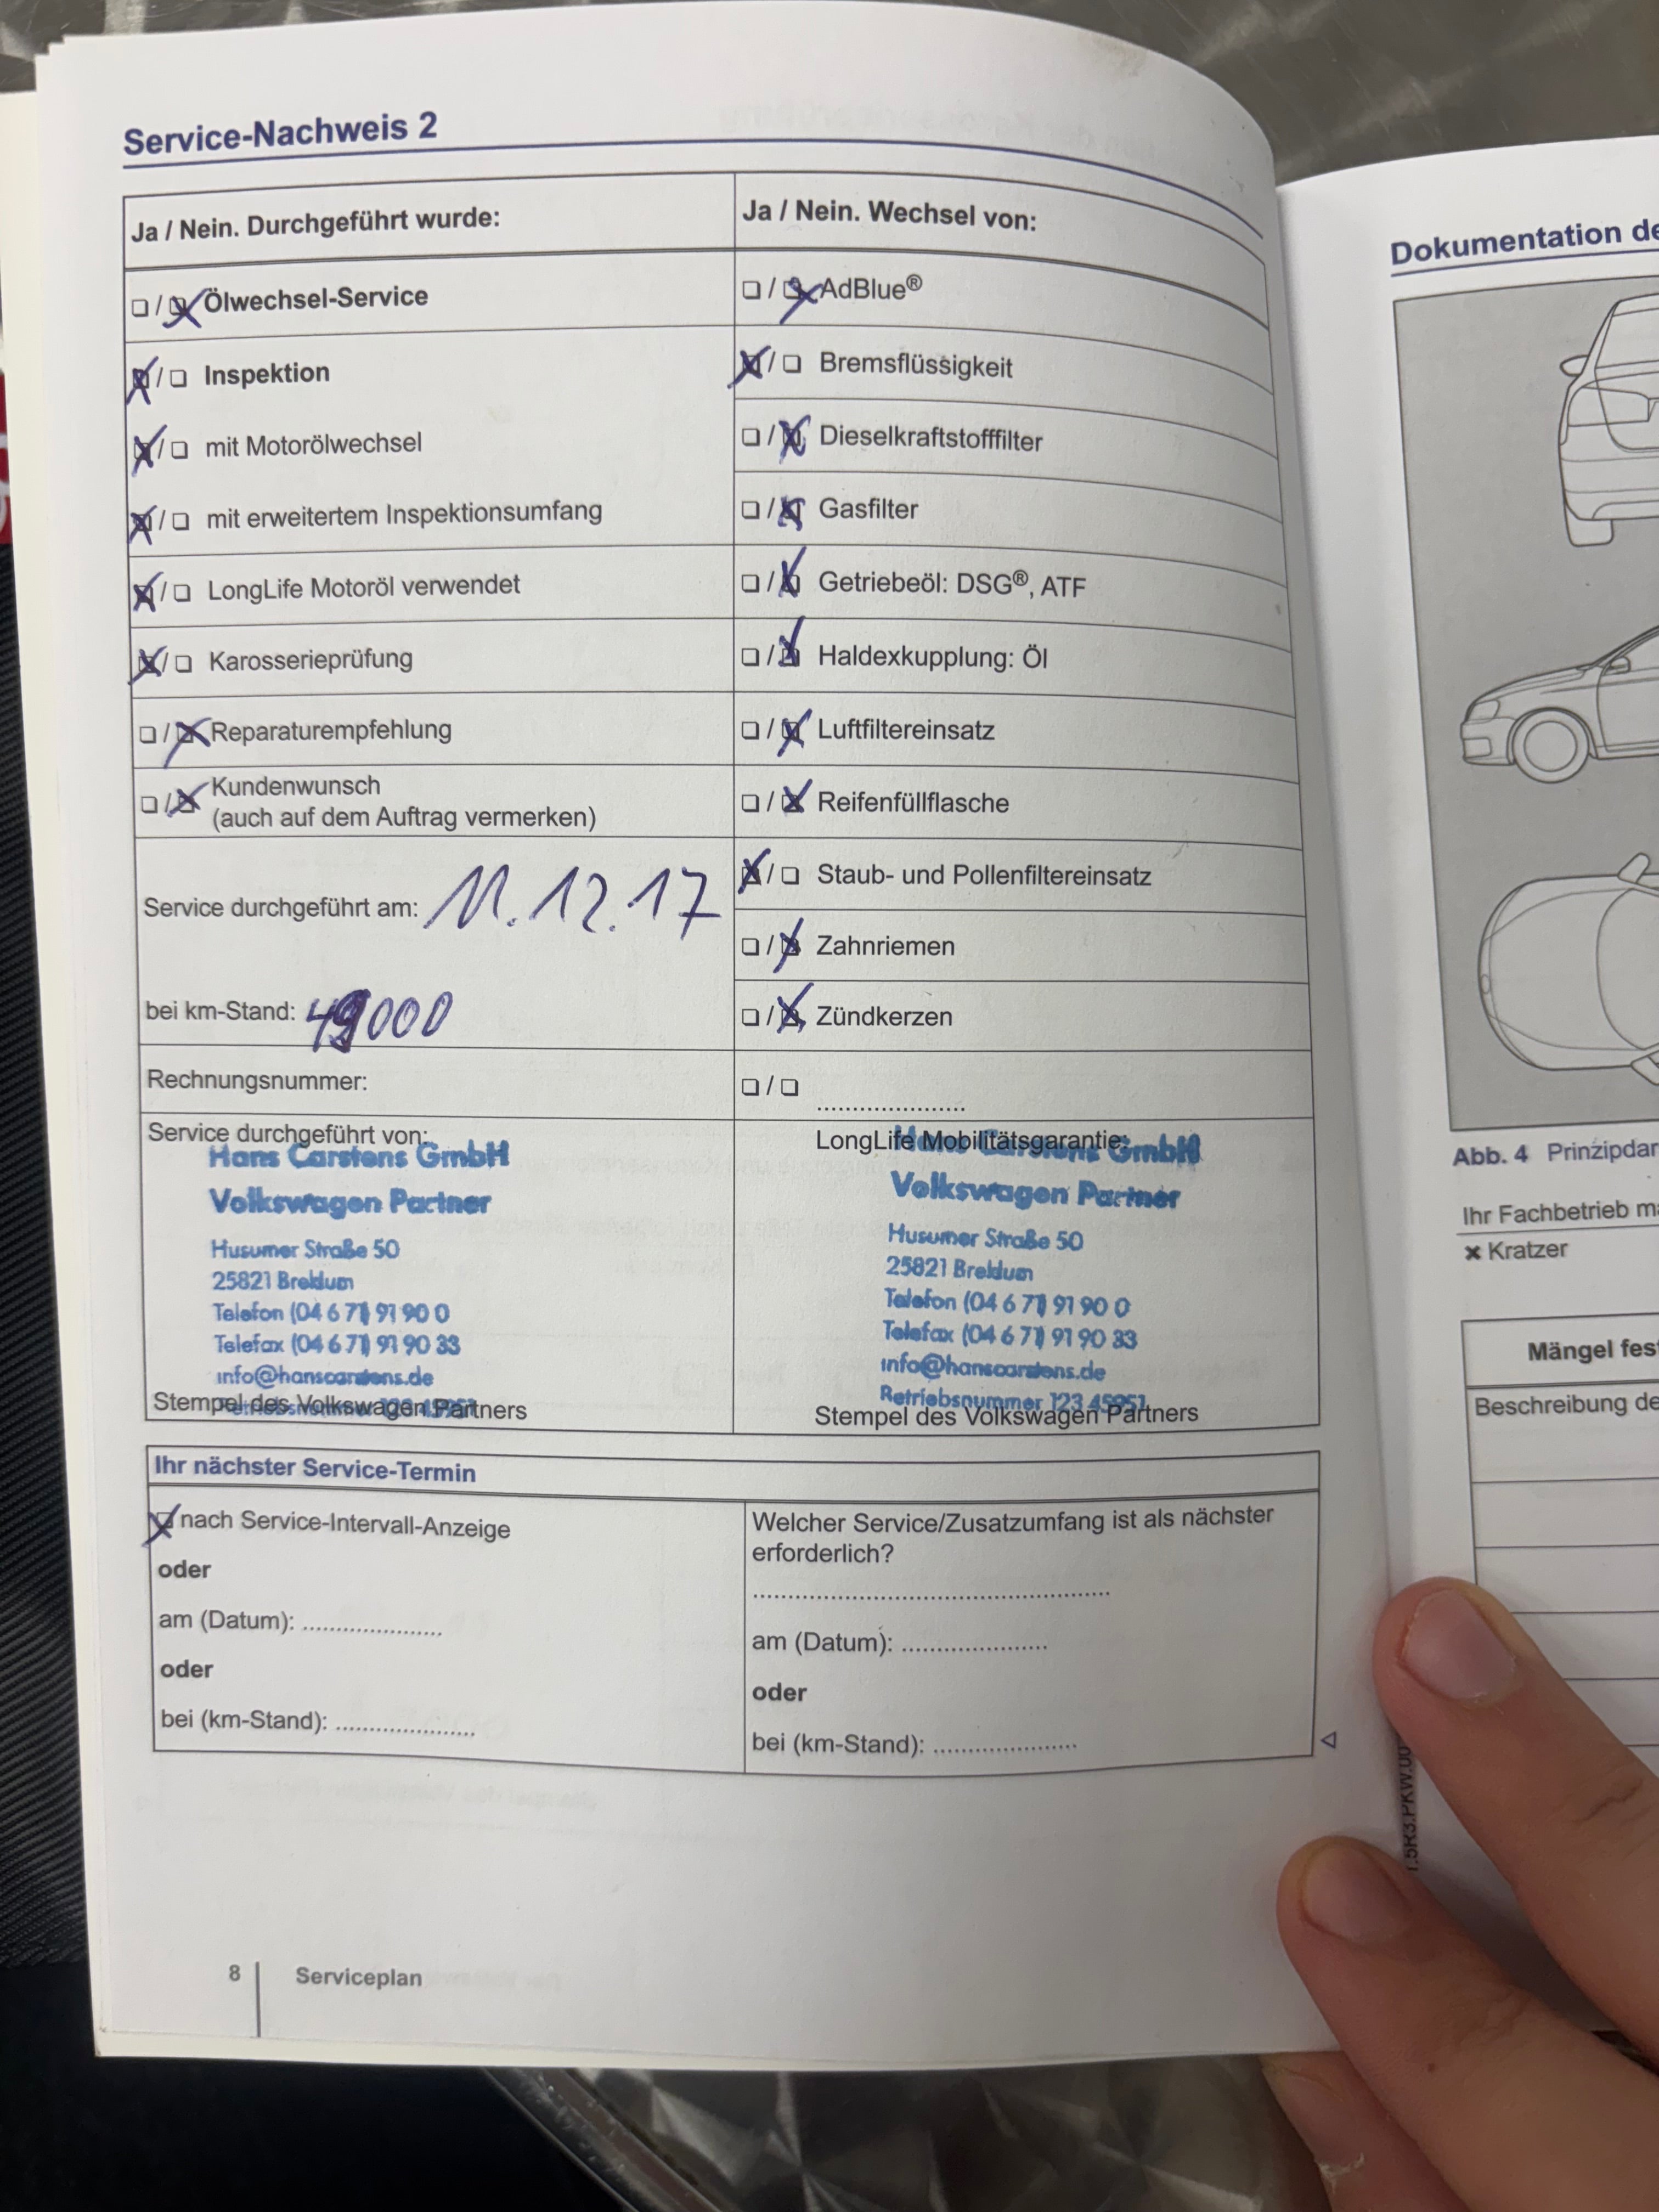 Service-Nachweis 2
Ja / Nein. Durchgeführt wurde:
❏ / ❏ Ölwechsel-Service
❏ / ❏ Inspektion
❏ / ❏ mit Motorölwechsel
❏ / ❏ mit erweitertem Inspektionsumfang
❏ / ❏ LongLife Motoröl verwendet
❏ / ❏ Karosserieprüfung
❏ / ❏ Reparaturempfehlung
❏ / ❏ Kundenwunsch
(auch auf dem Auftrag vermerken)
Service durchgeführt am: 11.12.17
bei km-Stand: 49000
Rechnungsnummer:
Ja / Nein. Wechsel von:
❏ / ❏ AdBlue®
❏ / ❏ Bremsflüssigkeit
❏ / ❏ Dieselkraftstofffilter
❏ / ❏ Gasfilter
❏ / ❏ Getriebeöl: DSG®, ATF
❏ / ❏ Haldexkupplung: Öl
❏ / ❏ Luftfiltereinsatz
❏ / ❏ Reifenfüllflasche
❏ / ❏ Staub- und Pollenfiltereinsatz
❏ / ❏ Zahnriemen
❏ / ❏ Zündkerzen
❏ / ❏ ......................
Service durchgeführt von:
Hans Carstens GmbH
Volkswagen Partner
Husumer Straße 50
25821 Breklum
Telefon (04 6 71) 91 90 0
Telefax (04 6 71) 91 90 33
info@hanscarstens.de
Stempel des Volkswagen Partners
LongLife Mobilitätsgarantie:
Hans Carstens GmbH
Volkswagen Partner
Husumer Straße 50
25821 Breklum
Telefon (04 6 71) 91 90 0
Telefax (04 6 71) 91 90 33
info@hanscarstens.de
Betriebsnummer 123
Stempel des Volkswagen Partners
Ihr nächster Service-Termin
❏ nach Service-Intervall-Anzeige
oder
am (Datum): .....................
oder
bei (km-Stand): .....................
Welcher Service/Zusatzumfang ist als nächster
erforderlich?
.....................................................
am (Datum): .....................
oder
bei (km-Stand): .....................
8
Serviceplan
Dokumentation de
Abb. 4 Prinzipdar
Ihr Fachbetrieb ma
× Kratzer
Mängel fest
Beschreibung de